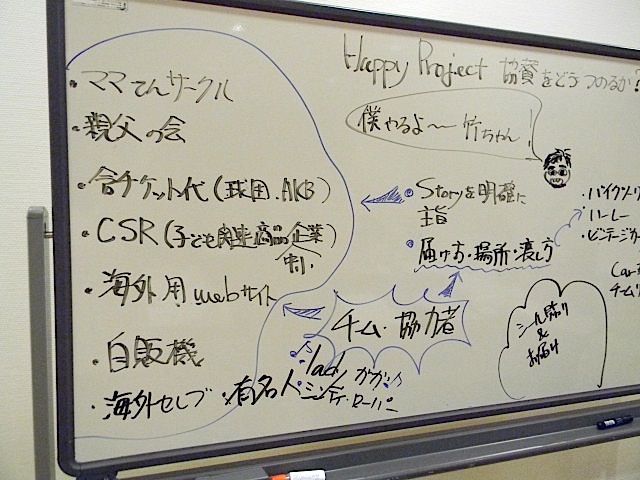 Happy Project 協賛をどうつのるか?
僕やるよ〜竹ちゃん!
・ママてんサークル
・親父の会
・合チケット代(球団.AKB)
・CSR(子ども関連商品企業)
・海外用webサイト
・自販機
・海外セレブ・有名人
Lady ガガ
シンディ・ローパー
Storyを明確に
届け方・場所・渡し方
チーム・協力者
・バイクツーリ
・ハーレー
・ビンテージカー
シール貼り
&
お届け
チームリ